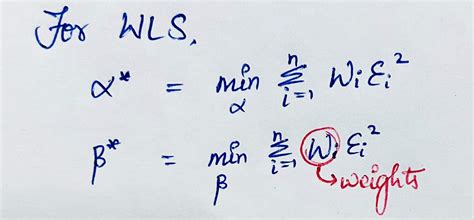 For WLS,
α* = min_α Σ_{i=1}^{n} W_i ε_i^2
β* = min_β Σ_{i=1}^{n} W_i ε_i^2
→weights